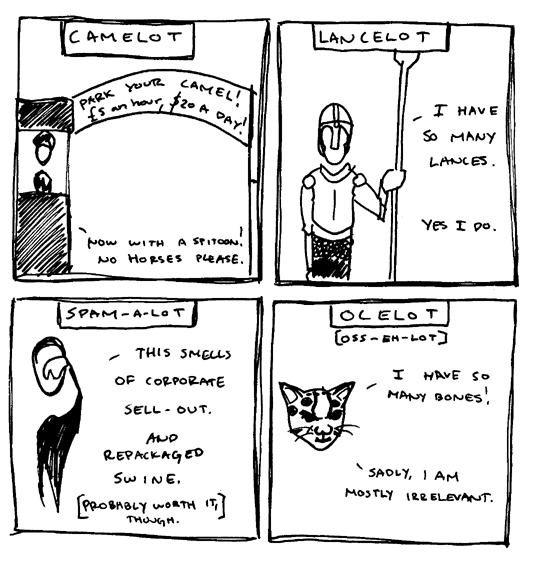 CAMELOT
PARK YOUR CAMEL!
£5 an hour, $20 A DAY!
NOW WITH A SPITOON!
NO HORSES PLEASE.
LANCELOT
I HAVE
SO MANY
LANCES.
YES I DO.
SPAM-A-LOT
THIS SMELLS
OF CORPORATE
SELL-OUT.
AND
REPACKAGED
SWINE.
[PROBABLY WORTH IT,
THOUGH.]
OCELOT
[OSS-EH-LOT]
I HAVE SO
MANY BONES!
SADLY, I AM
MOSTLY IRRELEVANT.